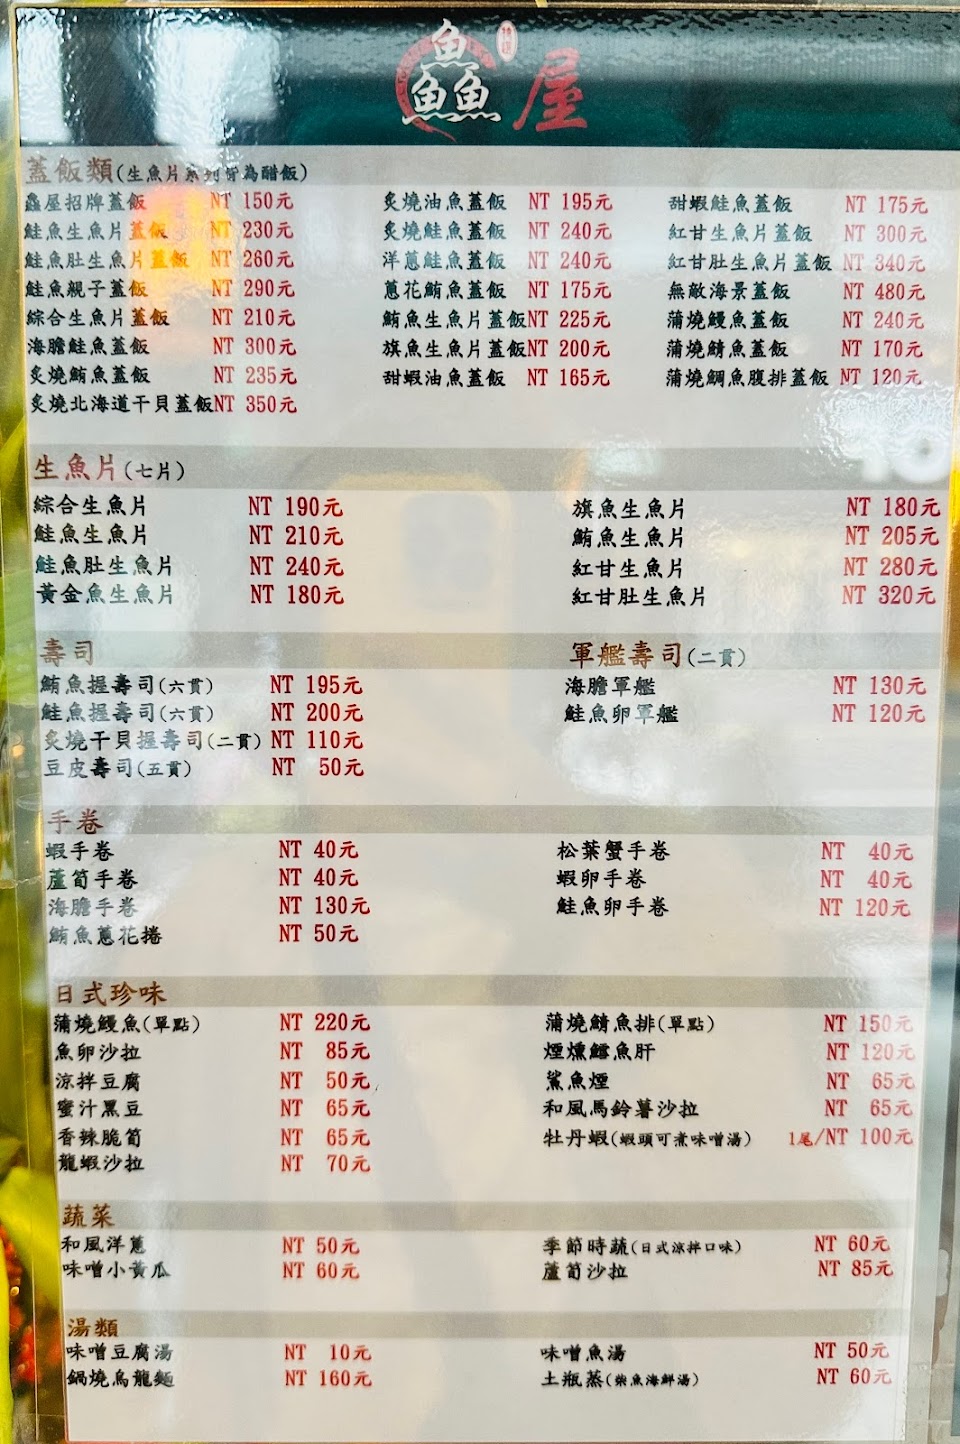 鱻屋
蓋飯類(生魚片系列皆為醋飯)
鱻屋招牌蓋飯 NT 150元 炙燒油魚蓋飯 NT 195元 甜蝦鮭魚蓋飯 NT 175元
鮭魚生魚片蓋飯 NT 230元 炙燒鮭魚蓋飯 NT 240元 紅甘生魚片蓋飯 NT 300元
鮭魚肚生魚片蓋飯 NT 260元 洋蔥鮭魚蓋飯 NT 240元 紅甘肚生魚片蓋飯 NT 340元
鮭魚親子蓋飯 NT 290元 蔥花鮪魚蓋飯 NT 175元 無敵海景蓋飯 NT 480元
綜合生魚片蓋飯 NT 210元 鮪魚生魚片蓋飯NT 225元 蒲燒鰻魚蓋飯 NT 240元
海膽鮭魚蓋飯 NT 300元 旗魚生魚片蓋飯NT 200元 蒲燒鯖魚蓋飯 NT 170元
炙燒鮪魚蓋飯 NT 235元 甜蝦油魚蓋飯 NT 165元 蒲燒鯛魚腹排蓋飯 NT 120元
炙燒北海道干貝蓋飯NT 350元
生魚片(七片)
綜合生魚片 NT 190元 旗魚生魚片 NT 180元
鮭魚生魚片 NT 210元 鮪魚生魚片 NT 205元
鮭魚肚生魚片 NT 240元 紅甘生魚片 NT 280元
黃金魚生魚片 NT 180元 紅甘肚生魚片 NT 320元
壽司 軍艦壽司(二貫)
鮪魚握壽司(六貫) NT 195元 海膽軍艦 NT 130元
鮭魚握壽司(六貫) NT 200元 鮭魚卵軍艦 NT 120元
炙燒干貝握壽司(二貫) NT 110元
豆皮壽司(五貫) NT 50元
手卷
蝦手卷 NT 40元 松葉蟹手卷 NT 40元
蘆筍手卷 NT 40元 蝦卵手卷 NT 40元
海膽手卷 NT 130元 鮭魚卵手卷 NT 120元
鮪魚蔥花捲 NT 50元
日式珍味
蒲燒鰻魚(單點) NT 220元 蒲燒鯖魚排(單點) NT 150元
魚卵沙拉 NT 85元 煙燻鱈魚肝 NT 120元
涼拌豆腐 NT 50元 鯊魚煙 NT 65元
蜜汁黑豆 NT 65元 和風馬鈴薯沙拉 NT 65元
香辣脆筍 NT 65元 牡丹蝦(蝦頭可煮味噌湯) 1尾/NT 100元
龍蝦沙拉 NT 70元
蔬菜
和風洋蔥 NT 50元 季節時蔬(日式涼拌口味) NT 60元
味噌小黃瓜 NT 60元 蘆筍沙拉 NT 85元
湯類
味噌豆腐湯 NT 10元 味噌魚湯 NT 50元
鍋燒烏龍麵 NT 160元 土瓶蒸(柴魚海鮮湯) NT 60元